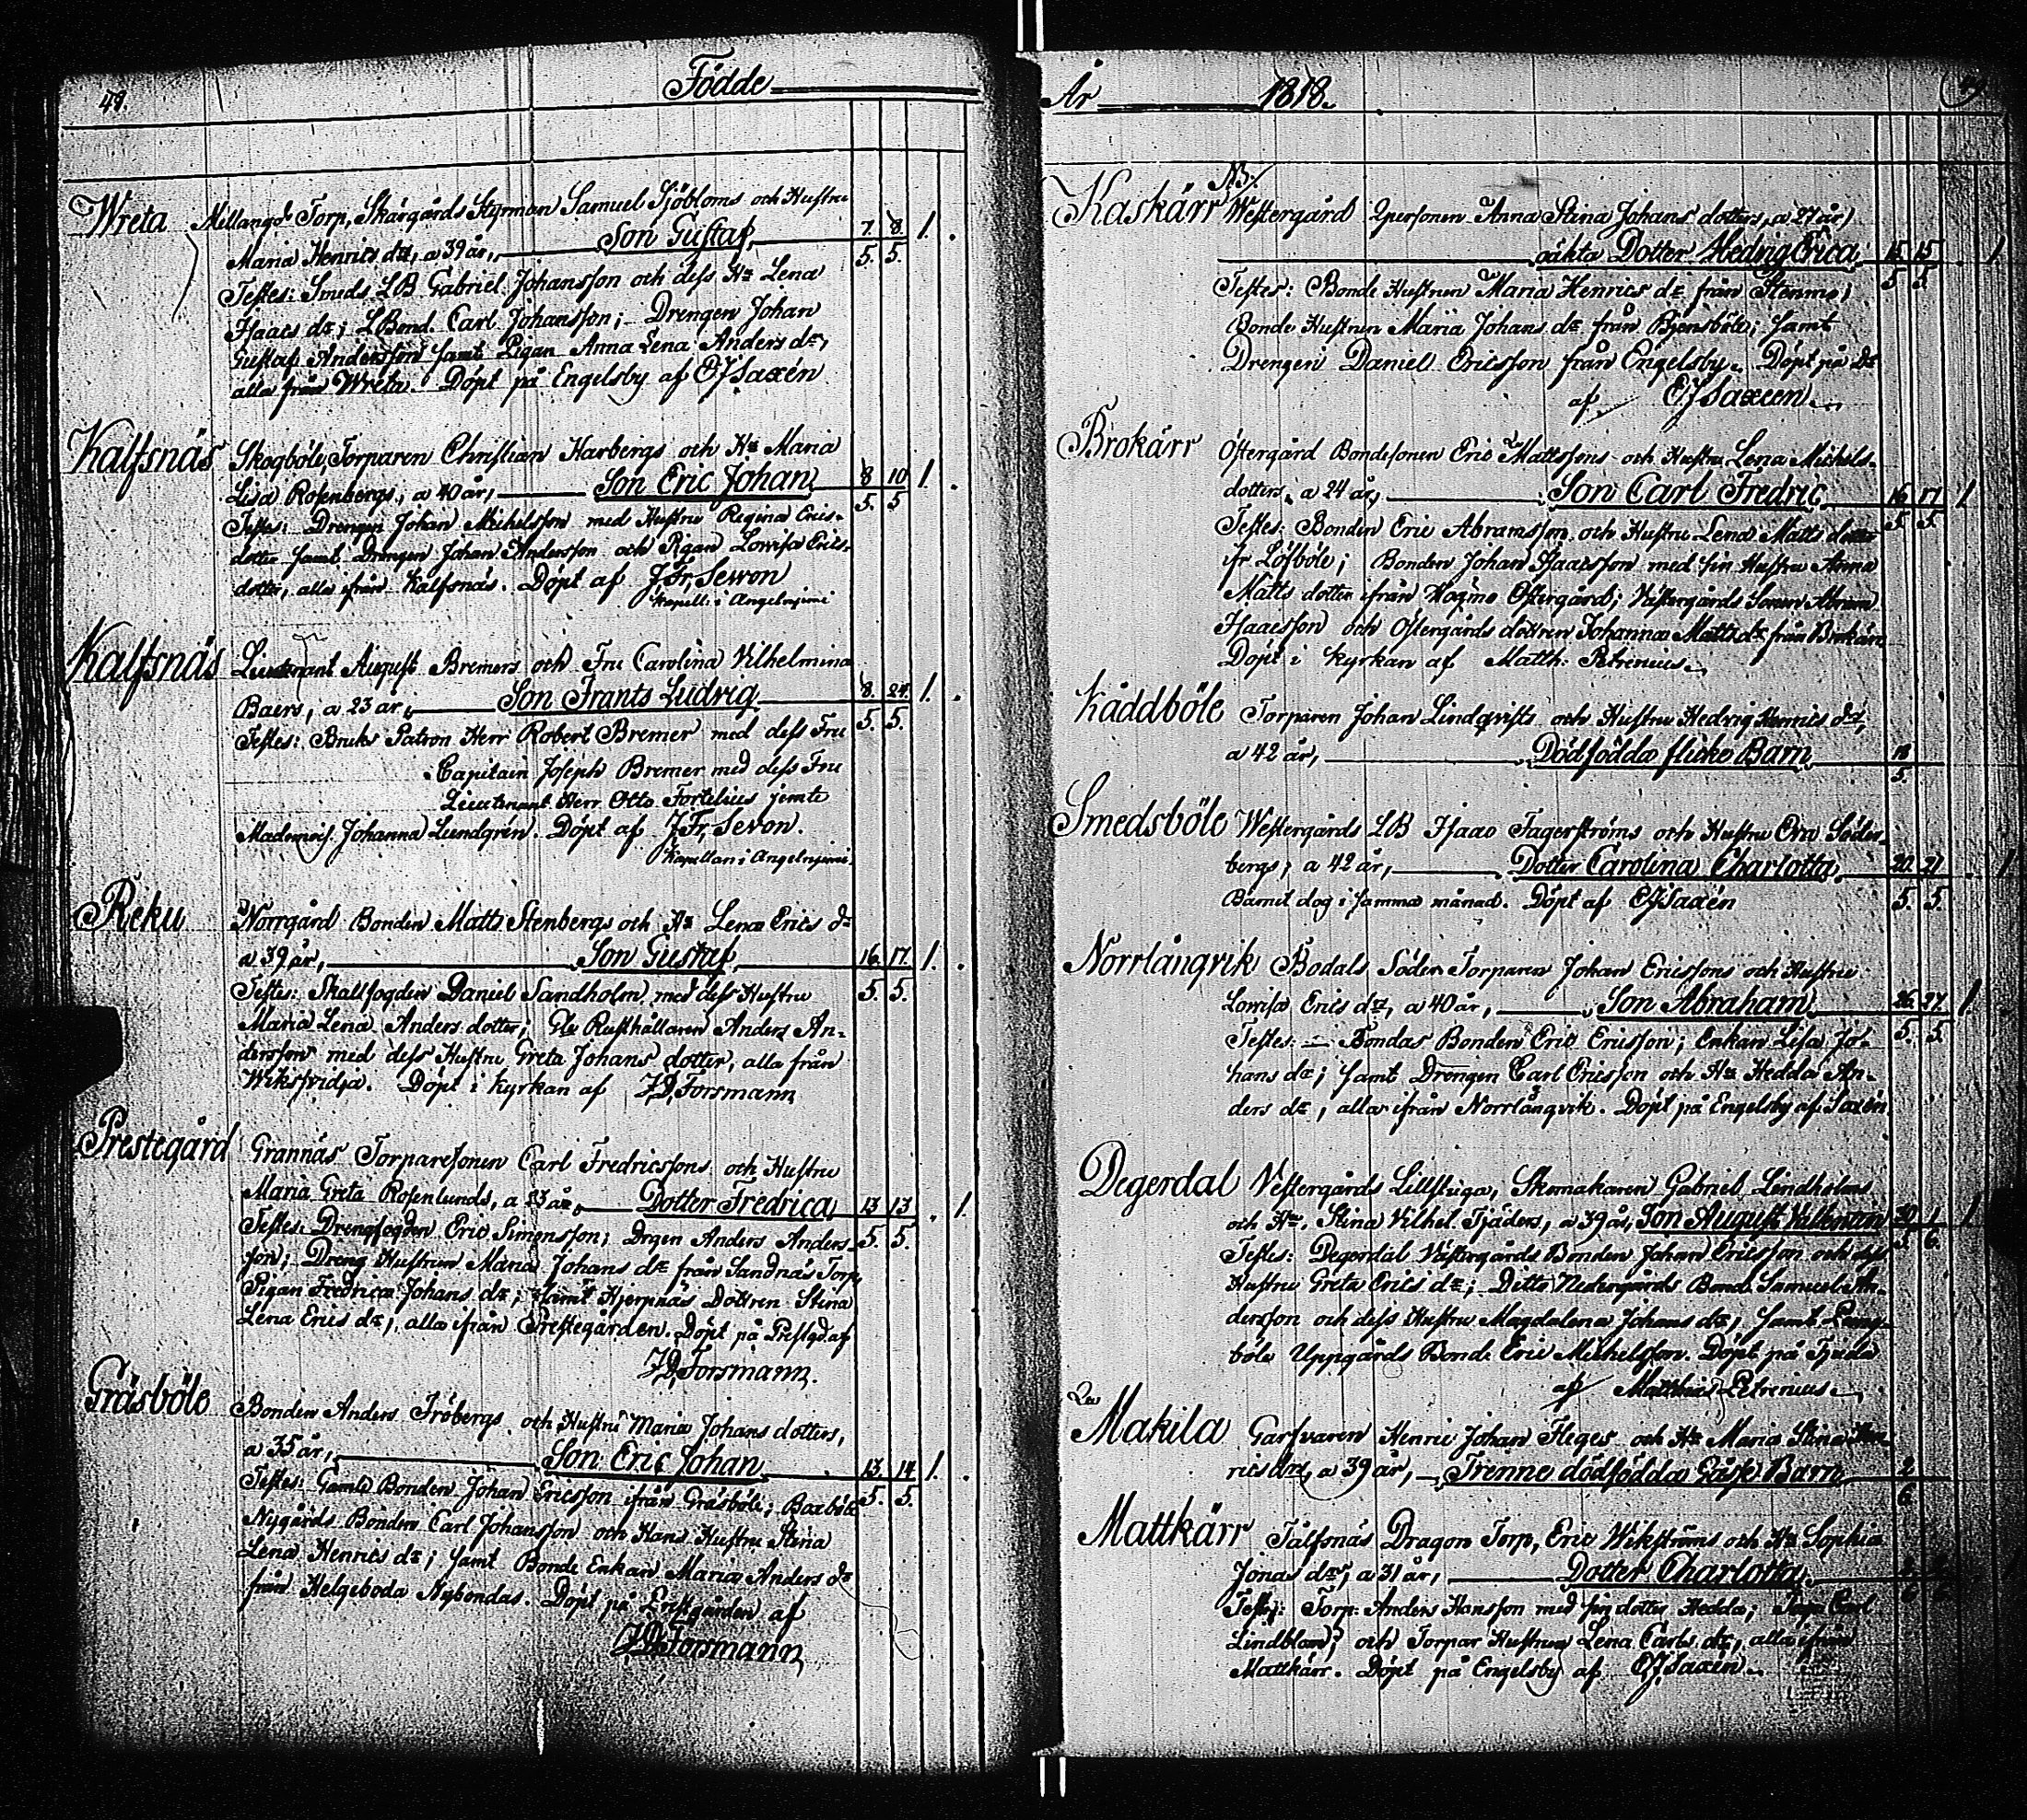 49.
Födde
Wreta Mellangds Torp, Skärgårds Styrman Samuel Sjöbloms och Hustru
Maria Henrics dr, a 39 år, Son Gustaf 7. 8. 1.
5. 5.
Testes: Smeds LB Gabriel Johansson och dess Hu Lena
Isaacs dr; LBond. Carl Johansson; Drengen Johan
Gustaf Andersson samt Pigan Anna Lena Anders dr,
alla från Wreta. Döpt på Engelsby af CJSaxén
Kalfsnäs Skogböle Torparen Christian Harbergs och Hu Maria
Lisa Rosenbergs, a 40 år, Son Eric Johan 8 10 1.
5. 5
Testes: Drengen Johan Michelsson med Hustru Regina Erics-
dotter samt Drengen Johan Andersson och Pigan Lovisa Erics-
dotter, alla ifrån Kalfsnäs. Döpt af J.Fr. Sevon
Kapell: i Angelnjemi
Kalfsnäs Lieutenant August Bremers och Fru Carolina Vilhelmina
Baers, a 23 år, Son Frants Ludvig 8. 24. 1.
5. 5.
Testes: Bruks Patron Herr Robert Bremer med dess Fru
Capitain Joseph Bremer med dess Fru
Lieutenant Herr Otto Fortelius jemte
Mademois. Johanna Lundgrén. Döpt af J.Fr. Sevon.
Kapellan i Angelnjemi.
Reku Norrgård Bonden Matts Stenbergs och Hu Lena Erics dr
a 39 år, Son Gustaf 16. 17. 1.
Testes: Skallfogden Daniel Sandholm med dess Hustru 5. 5.
Maria Lena Anders dotter; Gle Rusthållaren Anders An-
dersson med dess Hustru Greta Johans dotter, alla från
Wiksvidja. Döpt i Kyrkan af JDForsmann
Prestegård Grannäs Torparesonen Carl Fredricssons och Hustru
Maria Greta Rosenlunds, a 23 år, Dotter Fredrica 13 13 1.
Testes: Drengfogden Eric Simonsson; Drgen Anders Anders- 5. 5.
son; Dreng Hustrun Maria Johans dr från Sandnäs Torp,
Pigan Fredrica Johans dr; samt Hjerpnäs Dottren Stina
Lena Erics dr, alla ifrån Prestegården. Döpt på Prestgd af
JDForsmann.
Gräsböle Bonden Anders Fröbergs och Hustru Maria Johans dotters,
a 35 år, Son Eric Johan 13. 14. 1.
Testes: Gamle Bonden Johan Ericsson ifrån Gräsböle; Barböle 5. 5.
Nygårds Bonden Carl Johansson och Hans Hustru Stina
Lena Henrics dr; samt Bonde Enkan Maria Anders dr
från Helgeboda Nybondas. Döpt på Prestgården af
JDForsmann
År 1818.
NB.
Kaskärr Westergård Qpersonen Anna Stina Johans dotters, a 27 år,
oäkta Dotter Hedvig Erica 15. 15. 1
5 5.
Testes: Bonde Hustrun Maria Henrics dr från Stenmo;
Bonde Hustrun Maria Johans dr från Bjensböle; samt
Drengen Daniel Ericsson från Engelsby. Döpt på do
af CJSaxeen
Brokärr Östergård Bondesonen Eric Mattssons och Hustru Lena Michels-
dotters, a 24 år, Son Carl Fredric 16. 17. 1
5. 5.
Testes: Bonden Eric Abramsson och Hustru Lena Matts dotter
fr Löfböle; Bonden Johan Isaacsson med sin Hustru Anna
Matts dotter ifrån Högmo Östergård; Västergårds Sonen Abram
Isaacsson och Östergårds dottren Johanna Matts dr från Brokärr
Döpt i Kyrkan af Matth: Petrenius.
Kåddböle Torparen Johan Lindqvists och Hustru Hedvig Henrics dr,
a 42 år, Dödfödda flicke Barn 18
5.
Smedsböle Westergårds LB Isaac Fagerströms och Hustru Eva Söder-
bergs, a 42 år, Dotter Carolina Charlotta 20. 21 1
Barnet dog i samma månad. Döpt af CJSaxén 5. 5.
Norrlångvik Bodals Söder Torparen Johan Ericssons och Hustru
Lovisa Erics dr, a 40 år, Son Abraham 26. 27. 1
5. 5.
Testes: Bondas Bonden Eric Ericsson; Enkan Lisa Jo-
hans dr; samt Drengen Carl Ericsson och Hu Hedda An-
ders dr, alla ifrån Norrlångvik. Döpt på Engelsby af Saxén
Degerdal Vestergårds Lillstuga, Skomakaren Gabriel Lindholms
och Hu. Stina Vilhel. Tjäders, a 39 år, Son August Vallentin 30 1 1
5. 6.
Testes: Degerdal Västergårds Bonden Johan Ericsson och dess
Hustru Greta Erics dr; Ditto Nedergårds Bond. Samuel An-
dersson och dess Hustru Magdalena Johans dr, samt
böle Uppgårds Bonde Eric Michelsson. Döpt på Tjuda
af Matthias Petrenius.
Makila Garfvaren Henric Johan Fleges och Hu Maria Stina Hen-
rics dr, a 39 år, Trenne dödfödda Gåsse Barn 2.
6.
Mattkärr Tälfsnäs Dragon Torp, Eric Wikströms och Hu Sophia
Jonas dr, a 31 år, Dotter Charlotta
6 6
Testes: Torp. Anders Hansson med sin dotter Hedda; Torp Carl
Lindblom; och Torpar Hustrun Lena Carls dr, alla ifrån
Mattkärr. Döpt på Engelsby af CJSaxén.